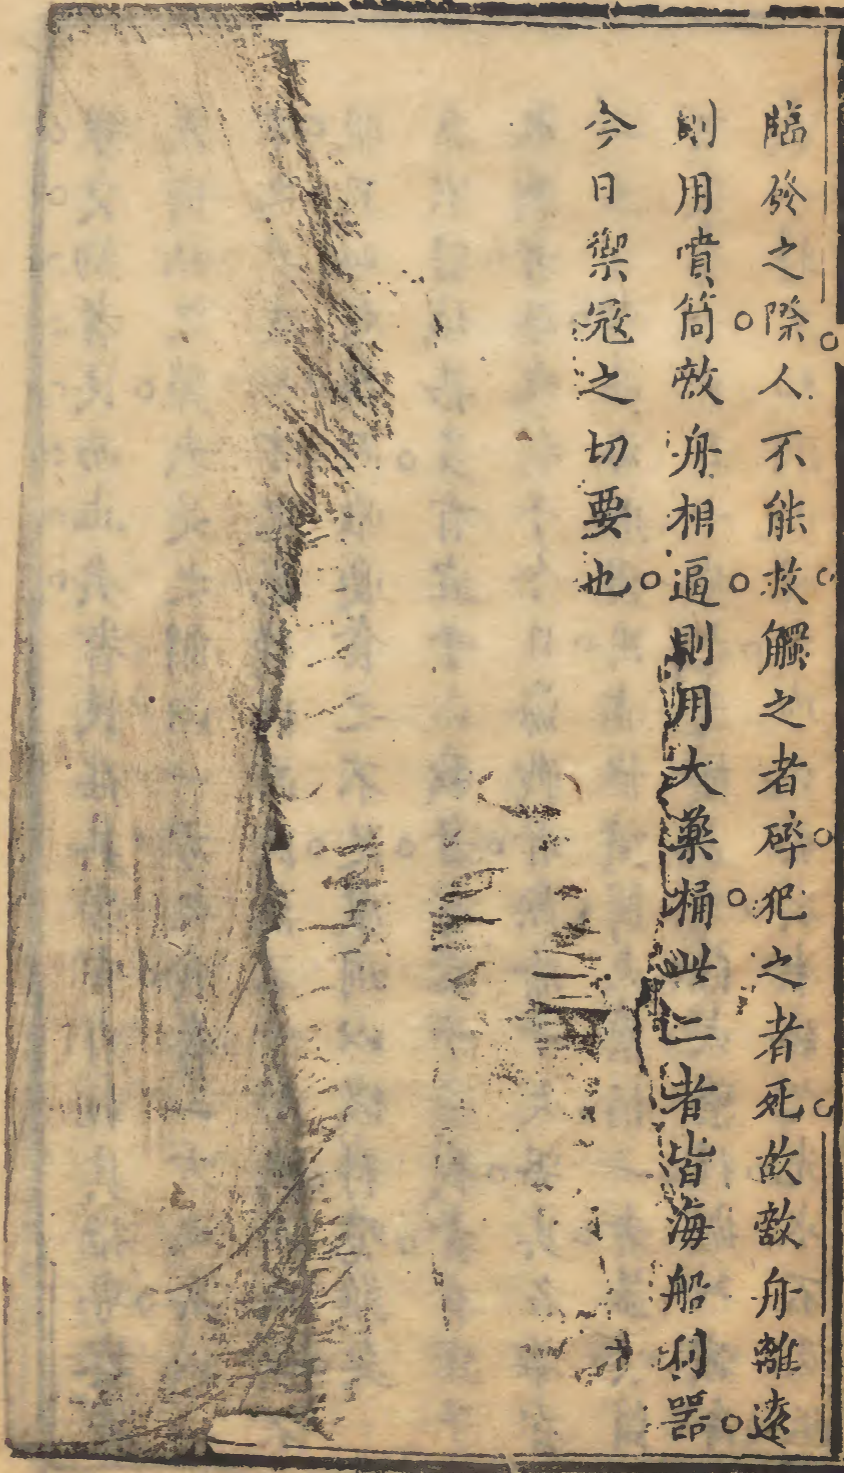 臨發之際人不能救觸之者碎犯之者死故敵舟離遠
則用噴筒敵舟相逼則用大藥桶此二者皆海船利器
今日禦冦之切要也